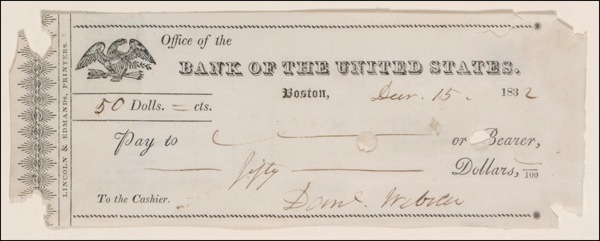 LINCOLN & EDMANDS, PRINTERS.
Office of the
BANK OF THE UNITED STATES.
Boston, Decr. 15. 1832
50 Dolls. = cts.
Pay to or Bearer,
fifty Dollars, /100
To the Cashier. Danl. Webster